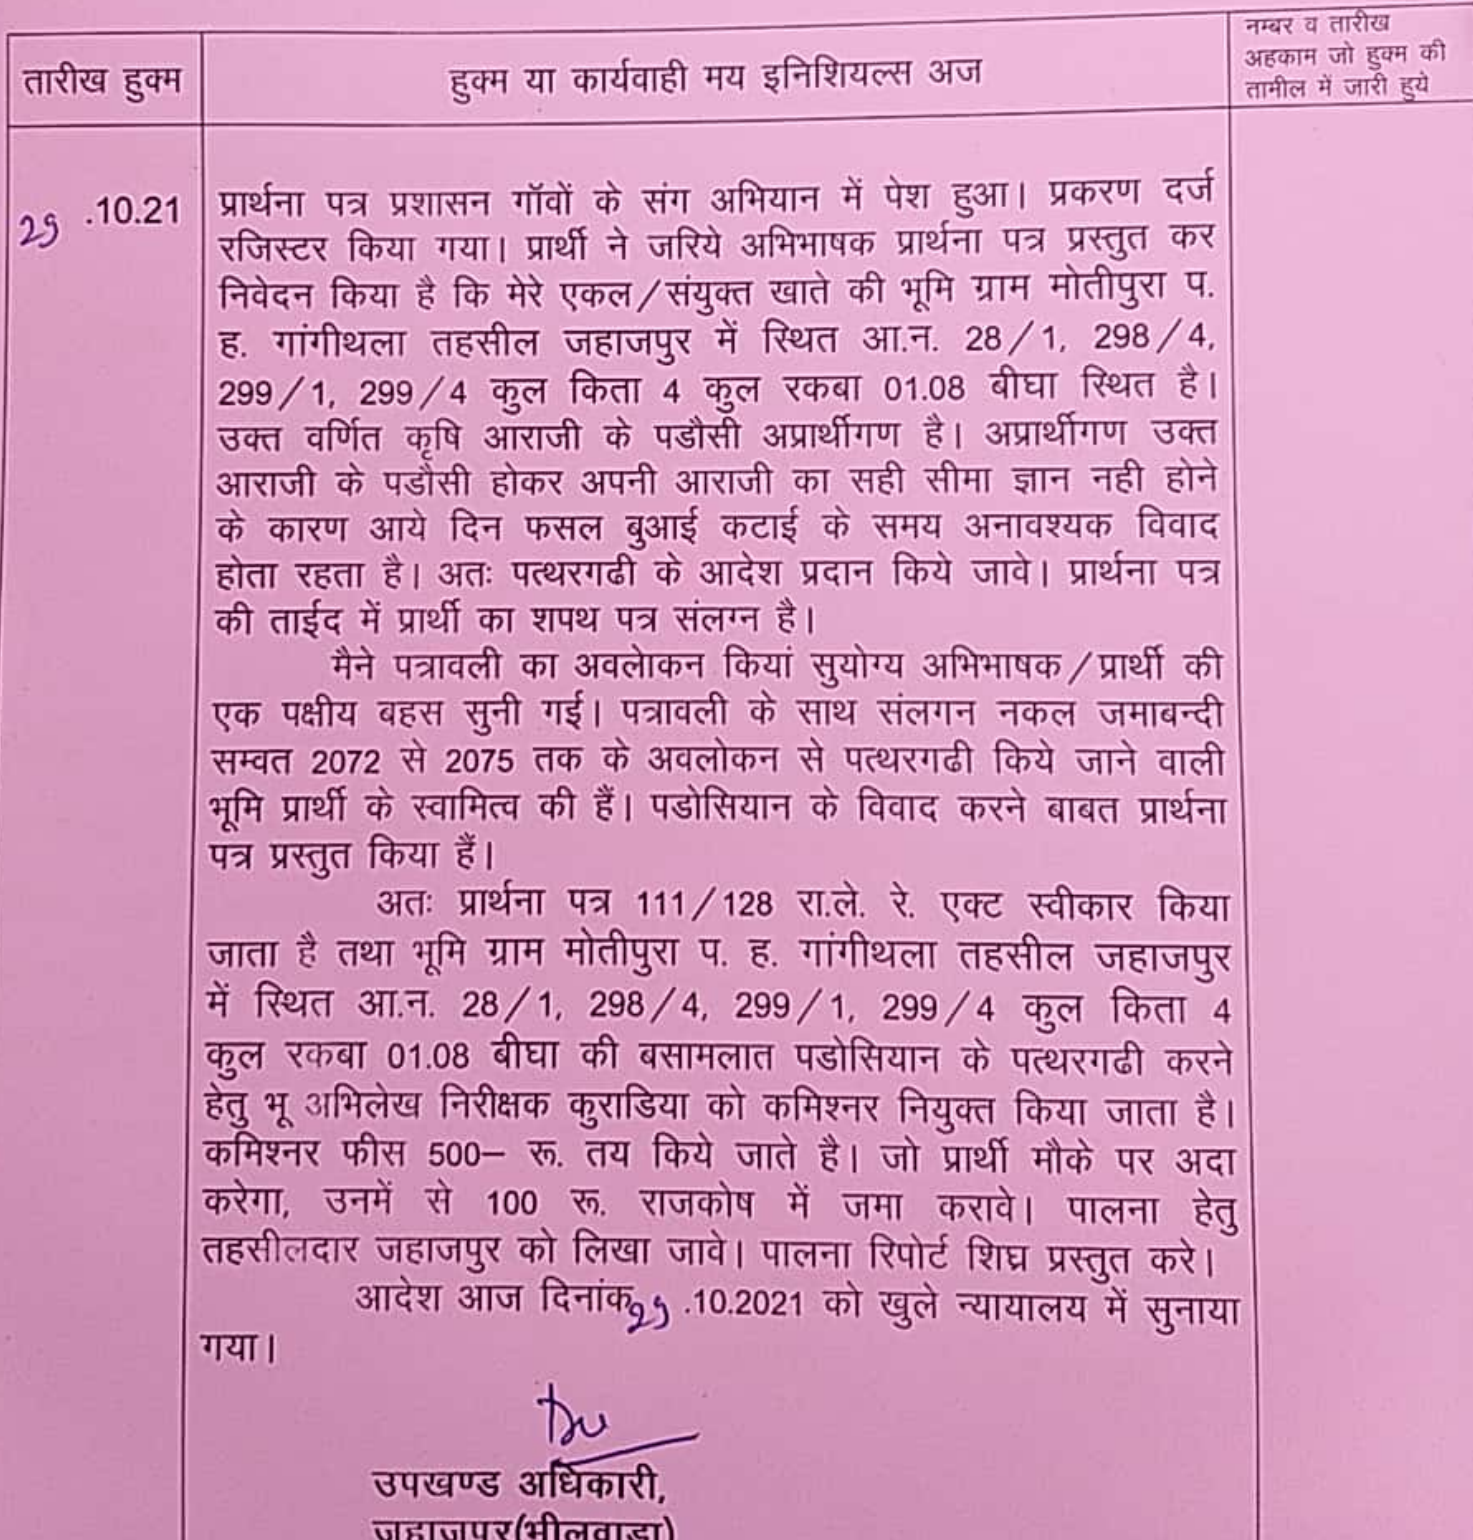 तारीख हुक्म
हुक्म या कार्यवाही मय इनिशियल्स अज
नम्बर व तारीख
अहकाम जो हुक्म की
तामील में जारी हुये
.10.21
प्रार्थना पत्र प्रशासन गॉवों के संग अभियान में पेश हुआ। प्रकरण दर्ज
रजिस्टर किया गया। प्रार्थी ने जरिये अभिभाषक प्रार्थना पत्र प्रस्तुत कर
निवेदन किया है कि मेरे एकल/संयुक्त खाते की भूमि ग्राम मोतीपुरा प.
ह. गांगीथला तहसील जहाजपुर में स्थित आ.न. 28/1, 298/4,
299/1, 299/4 कुल किता 4 कुल रकबा 01.08 बीघा स्थित है।
उक्त वर्णित कृषि आराजी के पडौसी अप्रार्थीगण है। अप्रार्थीगण उक्त
आराजी के पडौसी होकर अपनी आराजी का सही सीमा ज्ञान नही होने
के कारण आये दिन फसल बुआई कटाई के समय अनावश्यक विवाद
होता रहता है। अतः पत्थरगढी के आदेश प्रदान किये जावे। प्रार्थना पत्र
की ताईद में प्रार्थी का शपथ पत्र संलग्न है।
मैने पत्रावली का अवलेाकन कियां सुयोग्य अभिभाषक/प्रार्थी की
एक पक्षीय बहस सुनी गई। पत्रावली के साथ संलगन नकल जमाबन्दी
सम्वत 2072 से 2075 तक के अवलोकन से पत्थरगढी किये जाने वाली
भूमि प्रार्थी के स्वामित्व की हैं। पडोसियान के विवाद करने बाबत प्रार्थना
पत्र प्रस्तुत किया हैं।
अतः प्रार्थना पत्र 111/128 रा.ले. रे. एक्ट स्वीकार किया
जाता है तथा भूमि ग्राम मोतीपुरा प. ह. गांगीथला तहसील जहाजपुर
में स्थित आ.न. 28/1, 298/4, 299/1, 299/4 कुल किता 4
कुल रकबा 01.08 बीघा की बसामलात पडोसियान के पत्थरगढी करने
हेतु भू अभिलेख निरीक्षक कुराडिया को कमिश्नर नियुक्त किया जाता है।
कमिश्नर फीस 500– रू. तय किये जाते है। जो प्रार्थी मौके पर अदा
करेगा, उनमें से 100 रू. राजकोष में जमा करावे। पालना हेतु
तहसीलदार जहाजपुर को लिखा जावे। पालना रिपोर्ट शिघ्र प्रस्तुत करे।
आदेश आज दिनांक .10.2021 को खुले न्यायालय में सुनाया
गया।
उपखण्ड अधिकारी,
जहाजपुर(भीलवाडा)